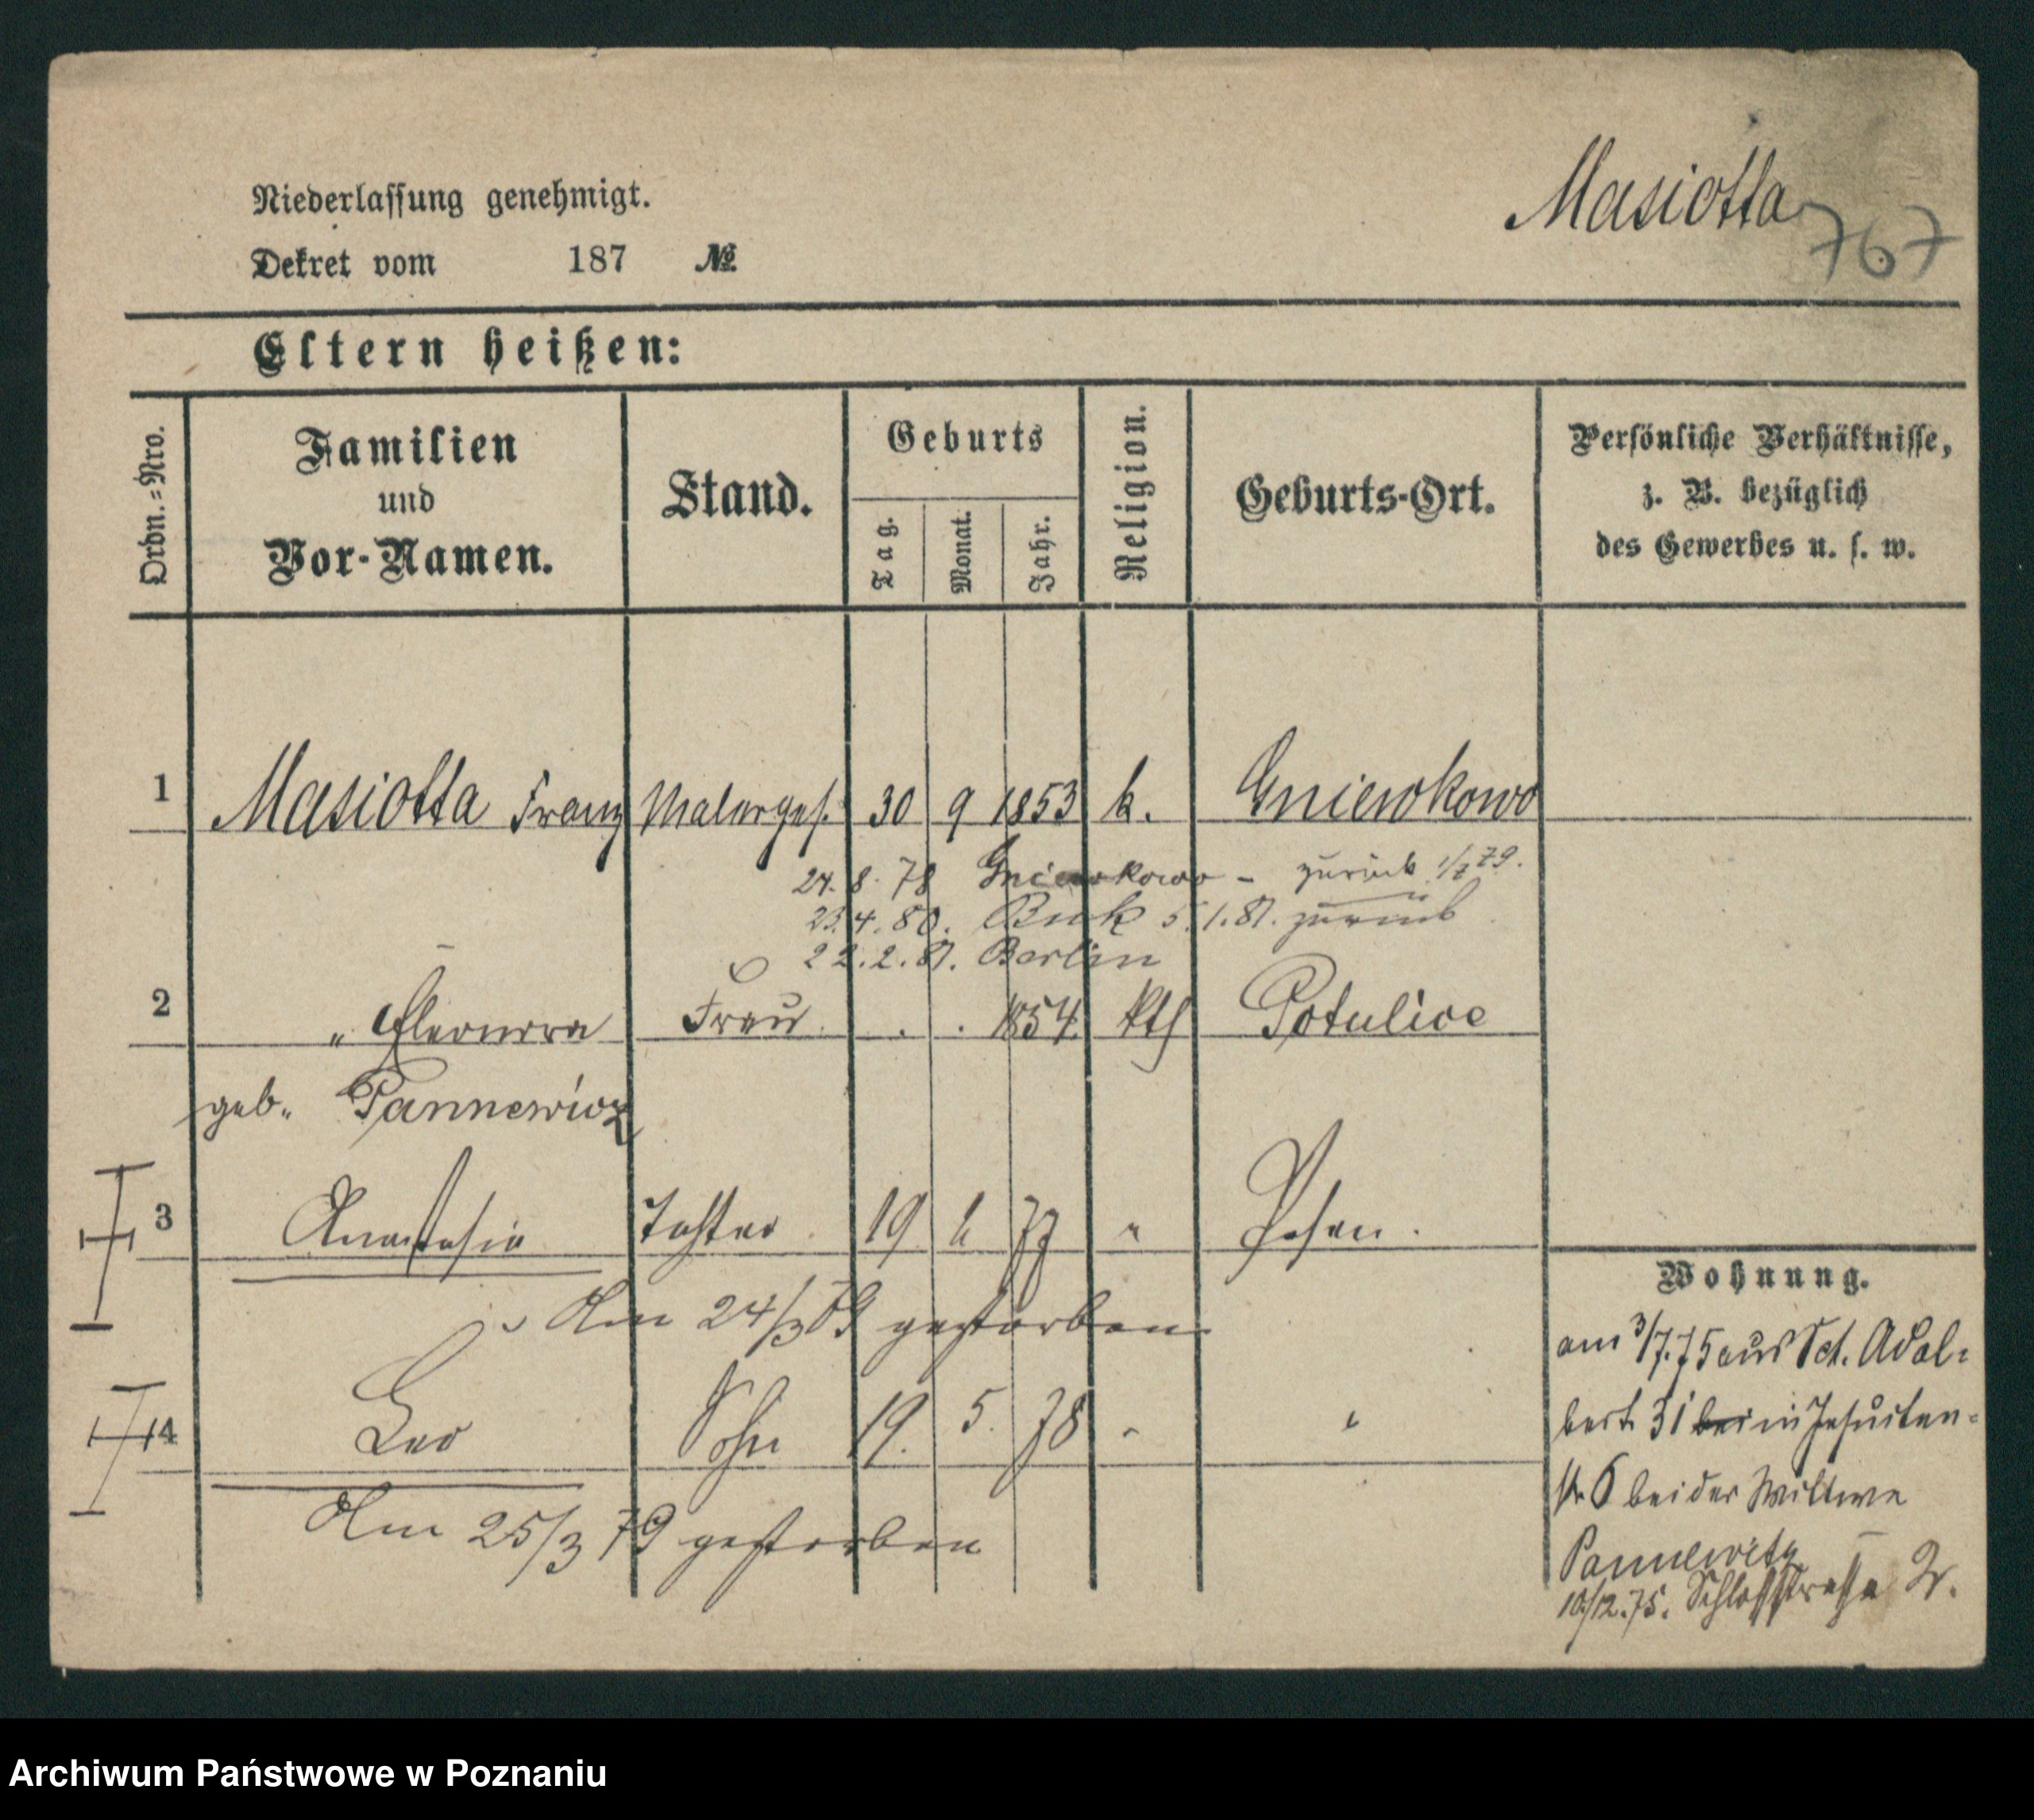 Niederlassung genehmigt.
Masiotta
767
Dekret vom 187 №
Eltern heißen:
Ordn.=Nro.
Familien
und
Vor-Namen.
Stand.
Geburts
Tag.
Monat.
Jahr.
Religion.
Geburts-Ort.
Persönliche Verhältnisse,
z. B. bezüglich
des Gewerbes u. s. w.
1 Masiotta Franz Malerges. 30 9 1853 k. Gniewkowo
24. 8. 78 Gniewkowo - zurück 79.
23.4.80. Buk 5.1.81. zurück
22.2.81. Berlin
2 " Eleonora Frau . . 1854. kth Potulice
geb. Pannewicz
3 Anastasia Tochter 19 77 " Posen.
Am 24/3 79 gestorben
4 Leo Sohn 19. 5. 78 " "
Am 25/3 79 gestorben
Wohnung.
am 3/7.75 aus Sct. Adal-
bert 31 bei in Jesuiten-
str 6 bei der Wittwe
Pannewitz
10/12.75. Schloßstrasse 2.
Archiwum Państwowe w Poznaniu